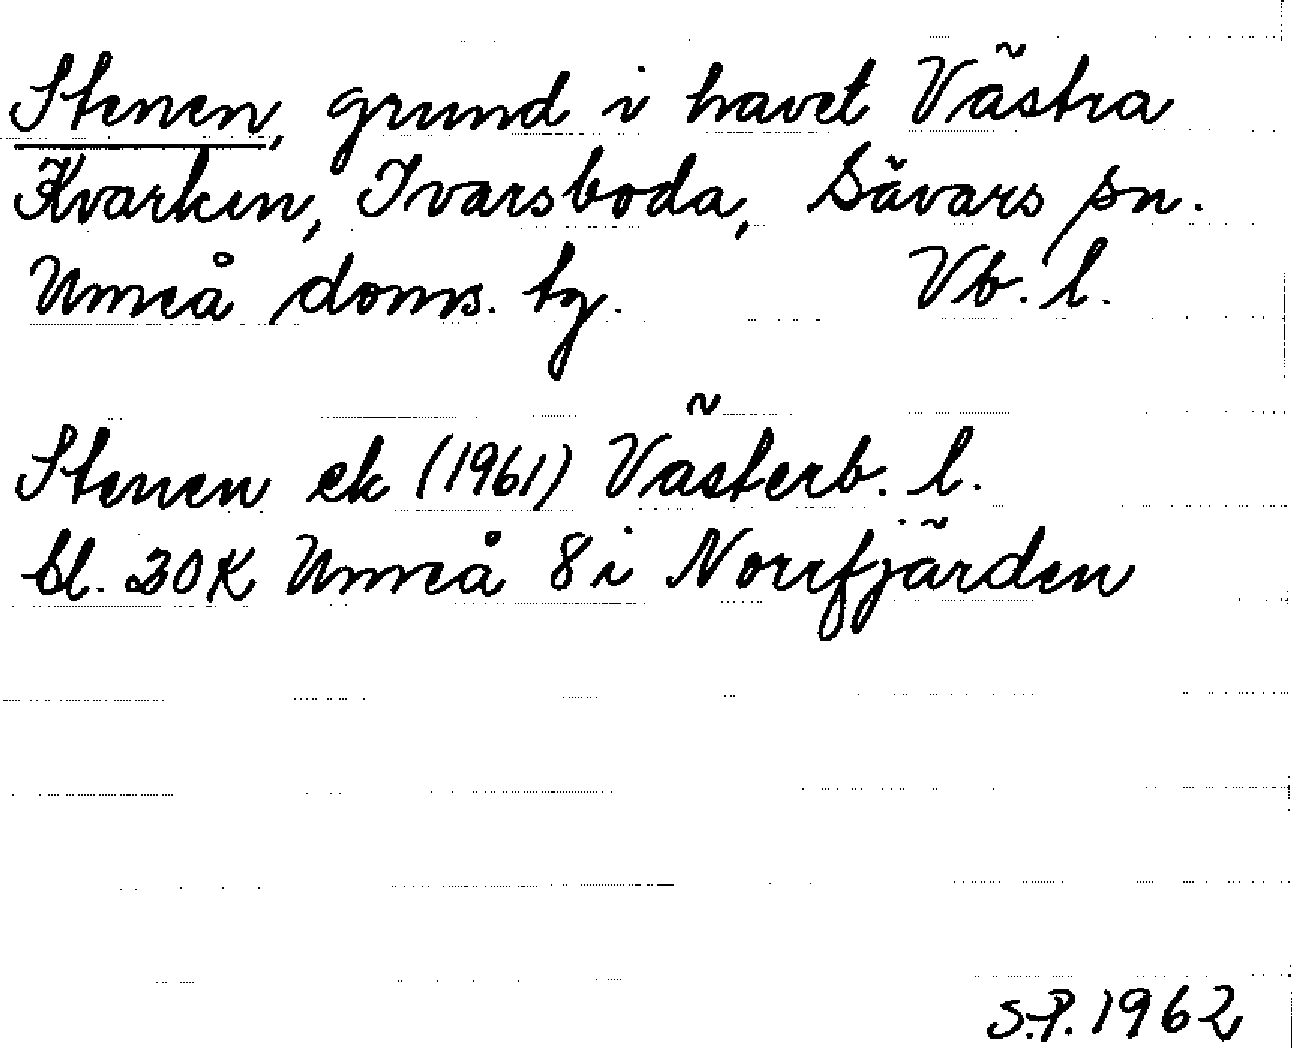 Stenen, grund i havet Västra
Kvarken, Ivarsboda, Sävars sn.
Umeå doms. tg. Vb. l.
Stenen ek (1961) Västerb. l.
bl. 20K Umeå 8i Norrfjärden
S.P. 1962